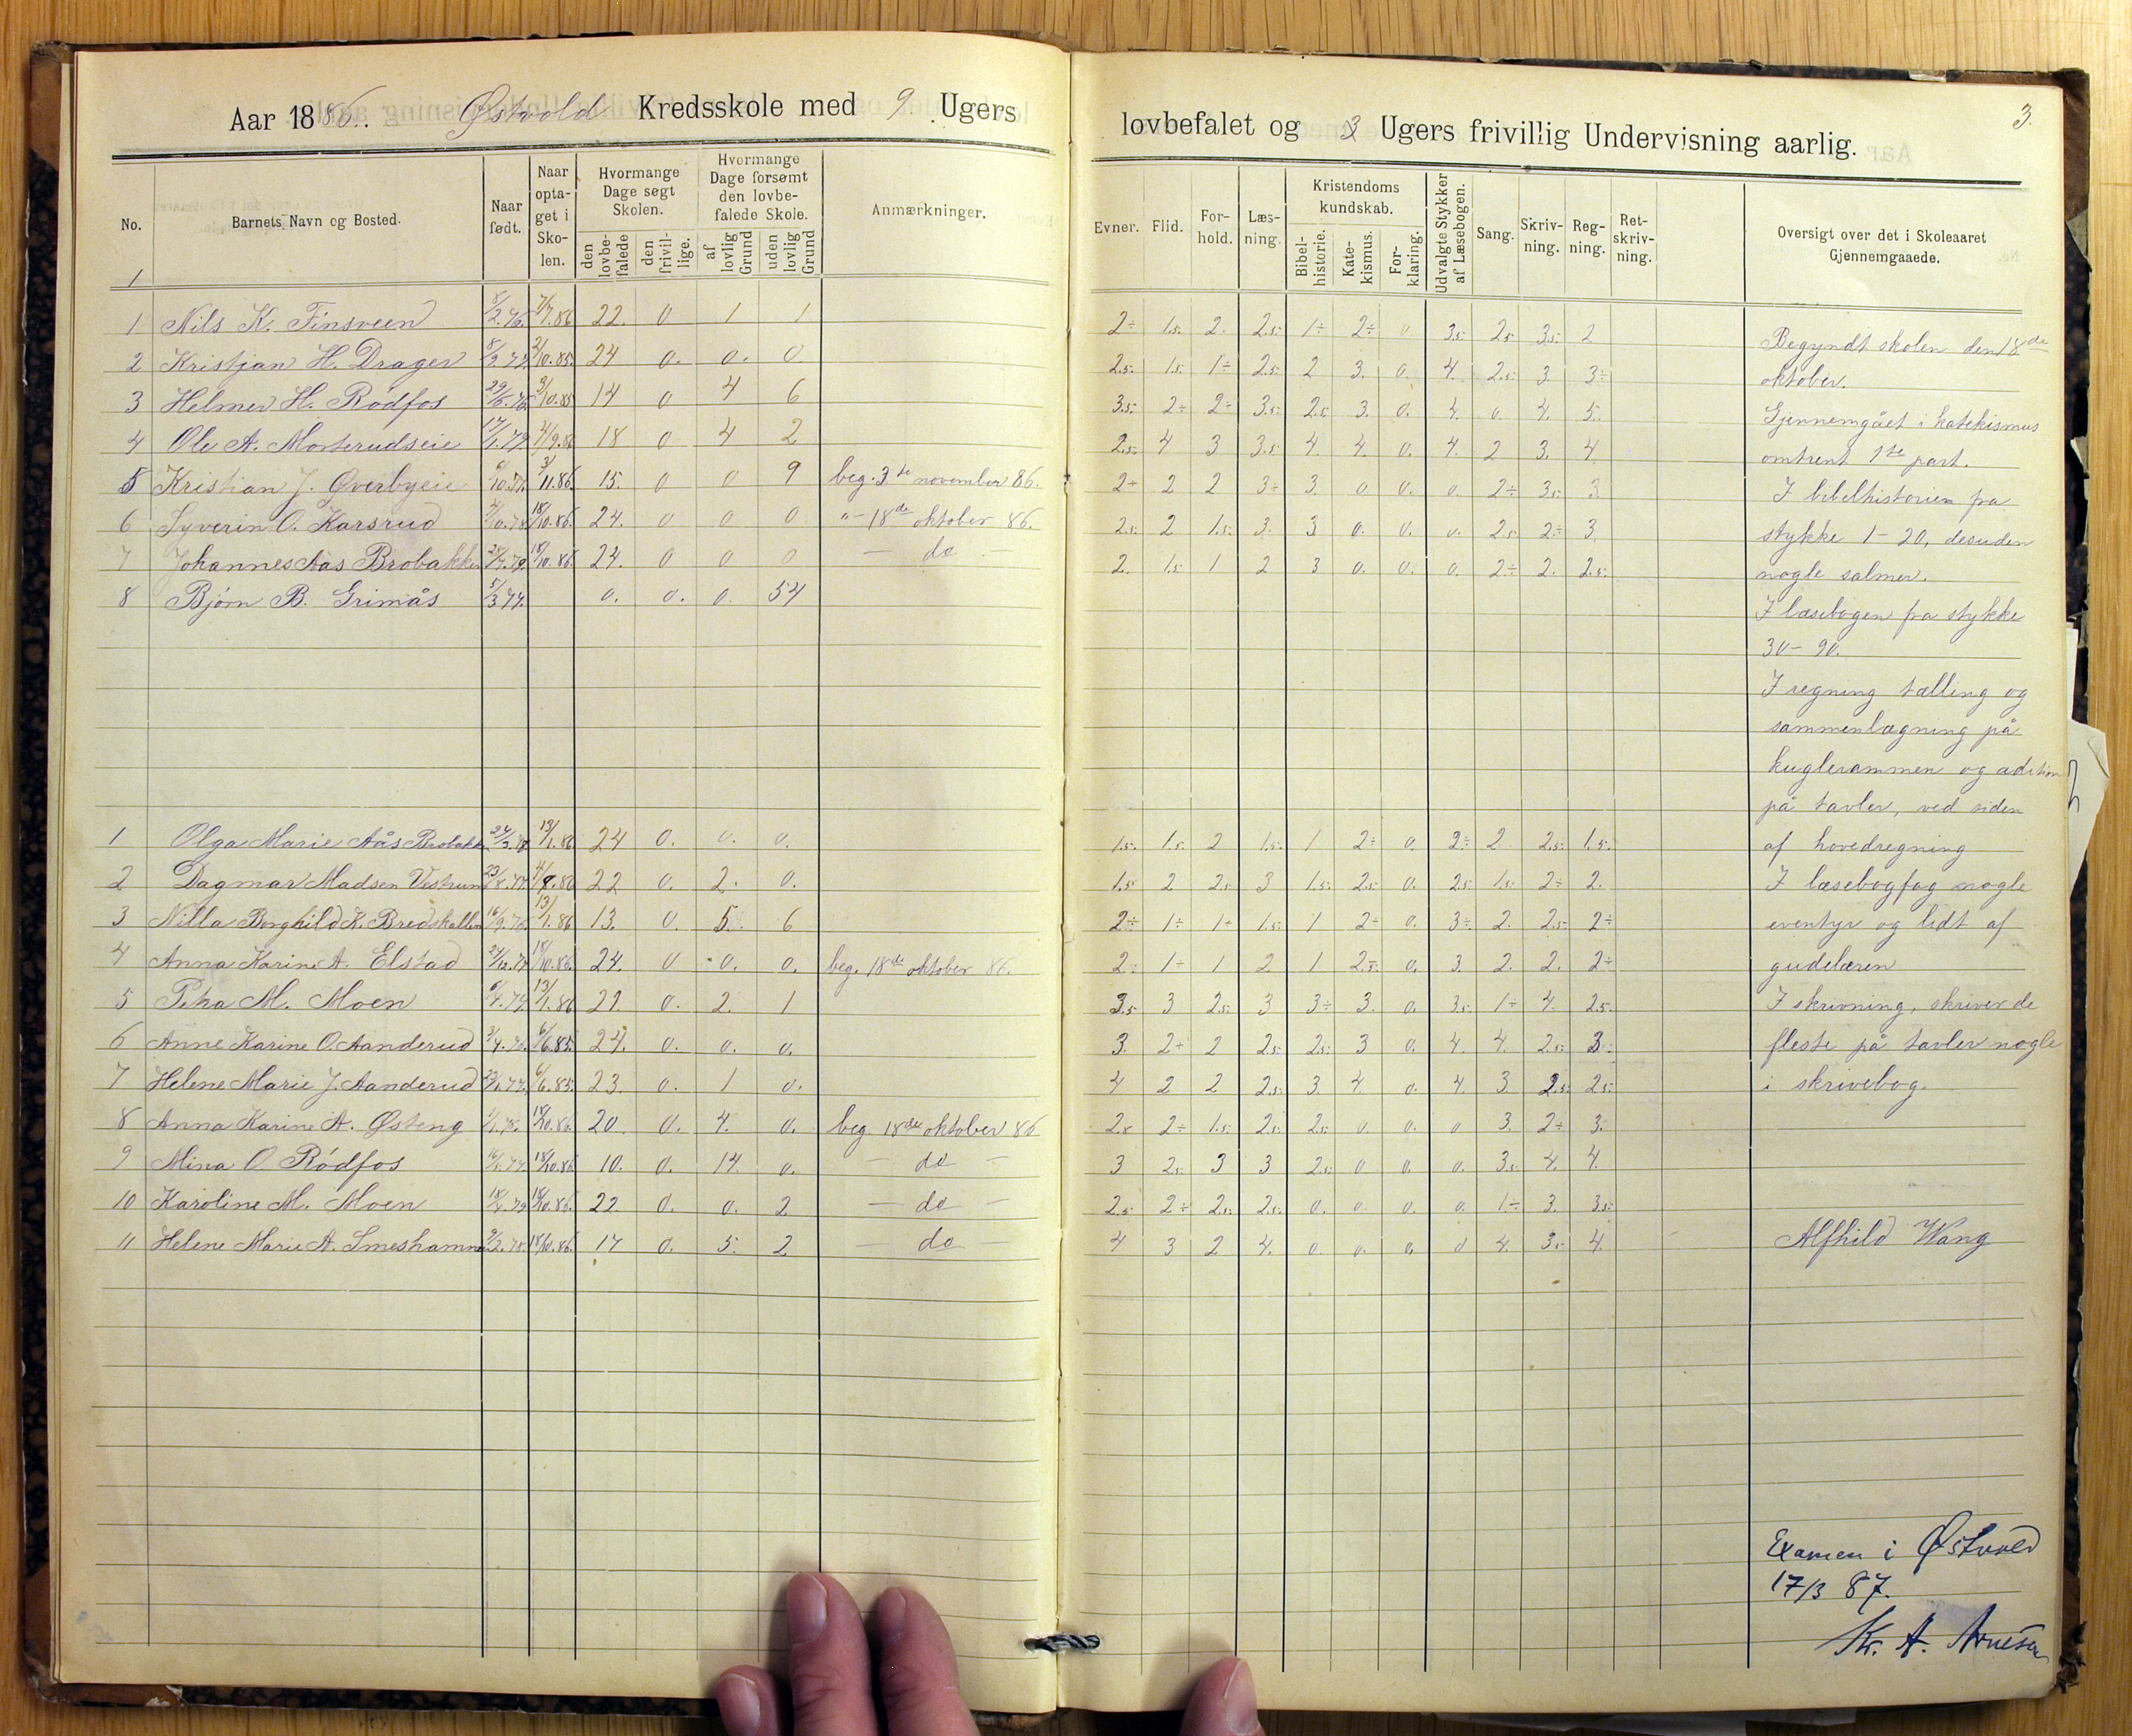 Aar 1886. Østvold Kredsskole med 9. Ugers
No. Barnets Navn og Bosted. Naar født. Naar optaget i Skolen. Hvormange Dage søgt Skolen. den lovbefalede den frivillige. Hvormange Dage forsømt den lovbefalede Skole. af lovlig Grund uden lovlig Grund Anmærkninger.
1
1 Nils K. Finsveen 7/7.86 22. 0 1 1
2 Kristjan H. Drager 24 0. 0. 0.
3 Helmer H. Rødfos 14 0 4 6
4 Ole A. Morterudseie 18 0 4 2
5 Kristian J. Øverbyeie 3/11.86. 15. 0 0 9 beg. 3te november 86.
6 Syverin O. Karsrud 18/10.86. 24. 0 0 0 "- 18de oktober 86.
7 Johannes Aas Brobakke 18/10.86. 24. 0 0 0 — do
8 Bjørn B. Grimås 5/3 77. 0. 0. 0. 54
1 Olga Marie Aås Brobakk 13/1.86 24 0. 0. 0.
2 Dagmar Madsen Vestrum 22 0. 2. 0.
3 Nilla Borghild K. Bredskallen 13/1.86 13. 0. 5. 6
4 Anna Karine A. Elstad 18/10.86. 24. 0 0. 0. beg. 18de oktober 86.
5 Petra M. Moen 13/1.86 21. 0. 2. 1
6 Anne Karine O. Aanderud 6/6.85. 24. 0. 0. 0.
7 Helene Marie J. Aanderud 6/6.85. 23. 0. 1 0.
8 Anna Karine A. Østeng 18/10.86. 20. 0. 4. 0. beg. 18de oktober 86
9 Mina O. Rødfos 18/10.86 10. 0. 14. 0. — do —
10 Karoline M. Moen 18/10.86. 22. 0. 0. 2 — do —
11 Helene Marie A. Smeshamm 18/10.86. 17 0. 5. 2 do
3.
lovbefalet og 3 Ugers frivillig Undervisning aarlig.
Evner. Flid. Forhold. Læsning. Kristendoms kundskab. Bibelhistorie. Katekismus. Forklaring. Udvalgte Stykker af Læsebogen. Sang. Skrivning. Regning. Retskrivning. Oversigt over det i Skoleaaret Gjennemgaaede.
2÷ 1.5. 2. 2.5. 1÷ 2÷ 0. 3.5 2.5 3.5. 2 Begyndt skolen den 18de
2.5. 1.5. 1÷ 2.5. 2 3. 0. 4. 2.5. 3 3÷ oktober.
3.5. 2÷ 2÷ 3.5. 2.5 3. 0. 4. 0. 4. 5. Gjennemgået i katekismus
2.5. 4 3 3.5 4. 4. 0. 4. 2 3. 4 omtrent 1ste part.
2÷ 2 2 3÷ 3. 0 0. 0. 2÷ 3.5. 3 I bibelhistorien fra
2.5. 2 1.5. 3. 3 0. 0. 0. 2.5 2÷ 3. stykke 1-20, desuden
2. 1.5 1 2 3 0. 0. 0. 2÷ 2. 2.5. nogle salmer.
I læsebogen fra stykke
30-90.
I regning tælling og
sammenlægning på
kuglerammen og adition
på tavler, ved siden
1.5. 1.5. 2 1.5. 1 2÷ 0. 2÷ 2 2.5. 1.5. af hovedregning
1.5 2 2.5 3 1.5. 2.5 0. 2.5 1.5. 2÷ 2. I læsebogfag nogle
2÷ 1÷ 1÷ 1.5. 1 2÷ 0. 3÷ 2. 2.5. 2÷ eventyr og lidt af
2. 1÷ 1 2 1 2.5. 0. 3. 2. 2. 2÷ gudelæren
3.5 3 2.5. 3 3÷ 3. 0. 3.5. 1÷ 4. 2.5. I skrivning, skriver de
3. 2÷ 2 2.5. 2.5. 3 0. 4. 4. 2.5. 3÷ fleste på tavler nogle
4 2 2 2.5. 3. 4. 0. 4. 3. 2.5. 2.5. i skrivebog.
2.5 2÷ 1.5. 2.5. 2.5. 0. 0. 0 3. 2÷ 3.
3 2.5. 3 3 2.5. 0 0. 0. 3.5. 4. 4.
2.5. 2÷ 2.5. 2.5. 0. 0. 0. 0. 1÷ 3. 3.5.
4 3 2 4. 0. 0. 0. 0 4. 3. 4. Alfhild Wang
Examen i Østvold
17/3 87.
Kr. A. Arnesen